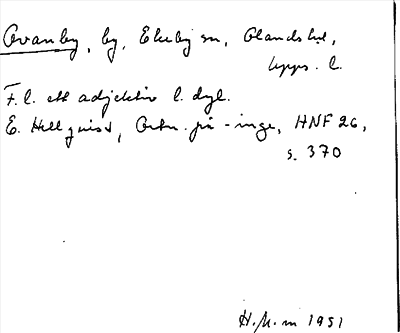 Ovanby, by, Ekeby sn, Olands hd,
Upps. l.
F. l. ett adjektiv l. dyl.
E. Hellquist, Ortn. på -inge, HNF 26,
s. 370
H.M. m 1951